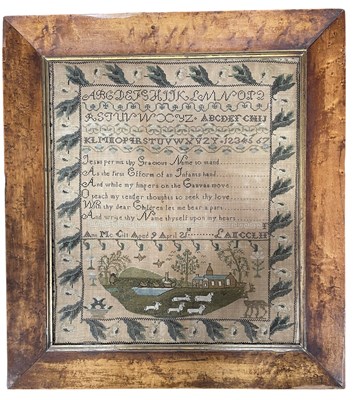 ABCDEFGHIJKLMNOPQ
RSTUVWXYZ ABCDEFGHIJ
KLMNOPQRSTUVWXYZ 1234567
Jesus permit thy Gracious Name to stand
As the first Efforts of an Infants hand
And while my fingers on the Canvas move
teach my tender thoughts to seek thy love
With thy dear Children let me have a part
And write thy Name thyself upon my heart
Ann Mc Aged 9 April 21